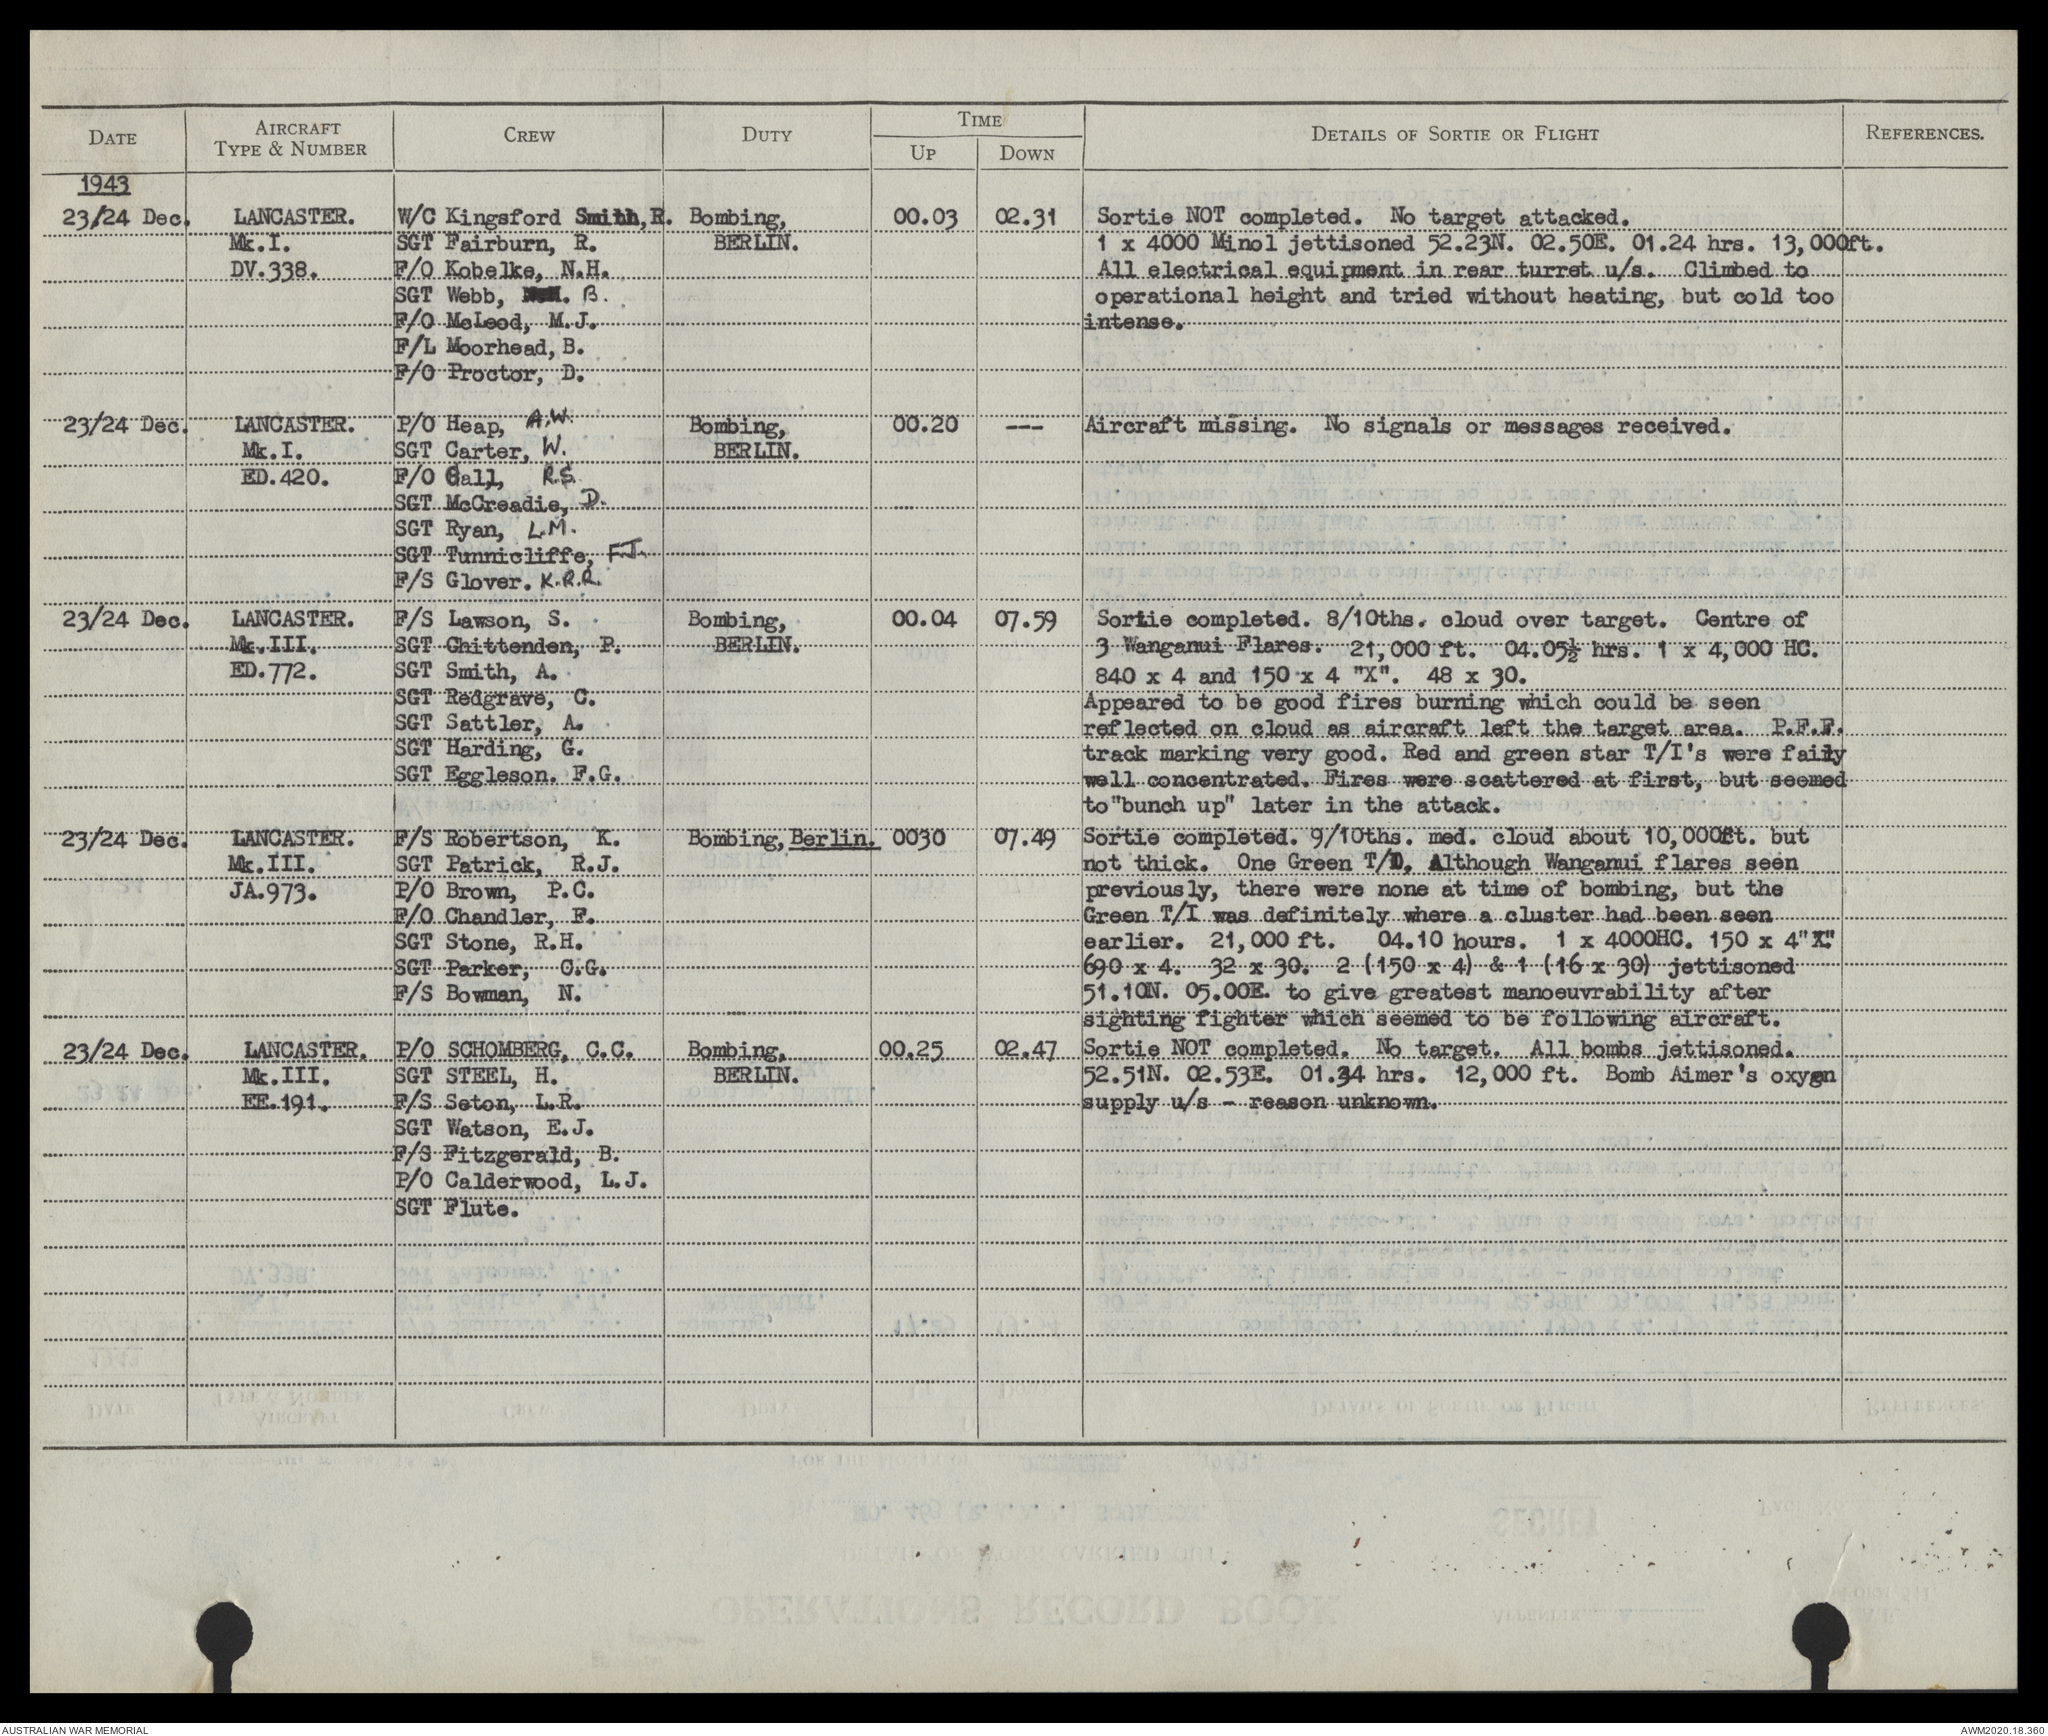 DATE AIRCRAFT TYPE & NUMBER CREW DUTY TIME UP DOWN DETAILS OF SORTIE OR FLIGHT REFERENCES.
1943
23/24 Dec. LANCASTER. W/C Kingsford Smith, R. Bombing, 00.03 02.31 Sortie NOT completed. No target attacked.
Mk.I. SGT Fairburn, R. BERLIN. 1 x 4000 Minol jettisoned 52.23N. 02.50E. 01.24 hrs. 13,000ft.
DV.338. F/O Kobelke, N.H. All electrical equipment in rear turret u/s. Climbed to
SGT Webb, B. operational height and tried without heating, but cold too
F/O McLeod, M.J. intense.
F/L Moorhead, B.
F/O Proctor, D.
23/24 Dec. LANCASTER. P/O Heap, A.W. Bombing, 00.20 --- Aircraft missing. No signals or messages received.
Mk.I. SGT Carter, W. BERLIN.
ED.420. F/O Gall, R.S.
SGT McCreadie, D.
SGT Ryan, L.M.
SGT Tunnicliffe, F.J.
F/S Glover. K.R.R.
23/24 Dec. LANCASTER. F/S Lawson, S. Bombing, 00.04 07.59 Sortie completed. 8/10ths. cloud over target. Centre of
Mk.III. SGT Chittenden, P. BERLIN. 3 Wanganui Flares. 21,000 ft. 04.05½ hrs. 1 x 4,000 HC.
ED.772. SGT Smith, A. 840 x 4 and 150 x 4 "X". 48 x 30.
SGT Redgrave, C. Appeared to be good fires burning which could be seen
SGT Sattler, A. reflected on cloud as aircraft left the target area. P.F.F.
SGT Harding, G. track marking very good. Red and green star T/I's were faily
SGT Eggleson. F.G. well concentrated. Fires were scattered at first, but seemed
to "bunch up" later in the attack.
23/24 Dec. LANCASTER. F/S Robertson, K. Bombing, Berlin. 0030 07.49 Sortie completed. 9/10ths. med. cloud about 10,000ft. but
Mk.III. SGT Patrick, R.J. not thick. One Green T/I. Although Wanganui flares seen
JA.973. P/O Brown, P.C. previously, there were none at time of bombing, but the
F/O Chandler, F. Green T/I was definitely where a cluster had been seen
SGT Stone, R.H. earlier. 21,000 ft. 04.10 hours. 1 x 4000HC. 150 x 4"X"
SGT Parker, C.G. 690 x 4. 32 x 30. 2 (150 x 4) & 1 (16 x 30) jettisoned
F/S Bowman, N. 51.10N. 05.00E. to give greatest manoeuvrability after
sighting fighter which seemed to be following aircraft.
23/24 Dec. LANCASTER. P/O SCHOMBERG, C.C. Bombing, 00.25 02.47 Sortie NOT completed. No target. All bombs jettisoned.
Mk.III. SGT STEEL, H. BERLIN. 52.51N. 02.53E. 01.34 hrs. 12,000 ft. Bomb Aimer's oxygn
EE.191. F/S Seton, L.R. supply u/s - reason unknown.
SGT Watson, E.J.
F/S Fitzgerald, B.
P/O Calderwood, L.J.
SGT Flute.
AUSTRALIAN WAR MEMORIAL AWM2020.18.360